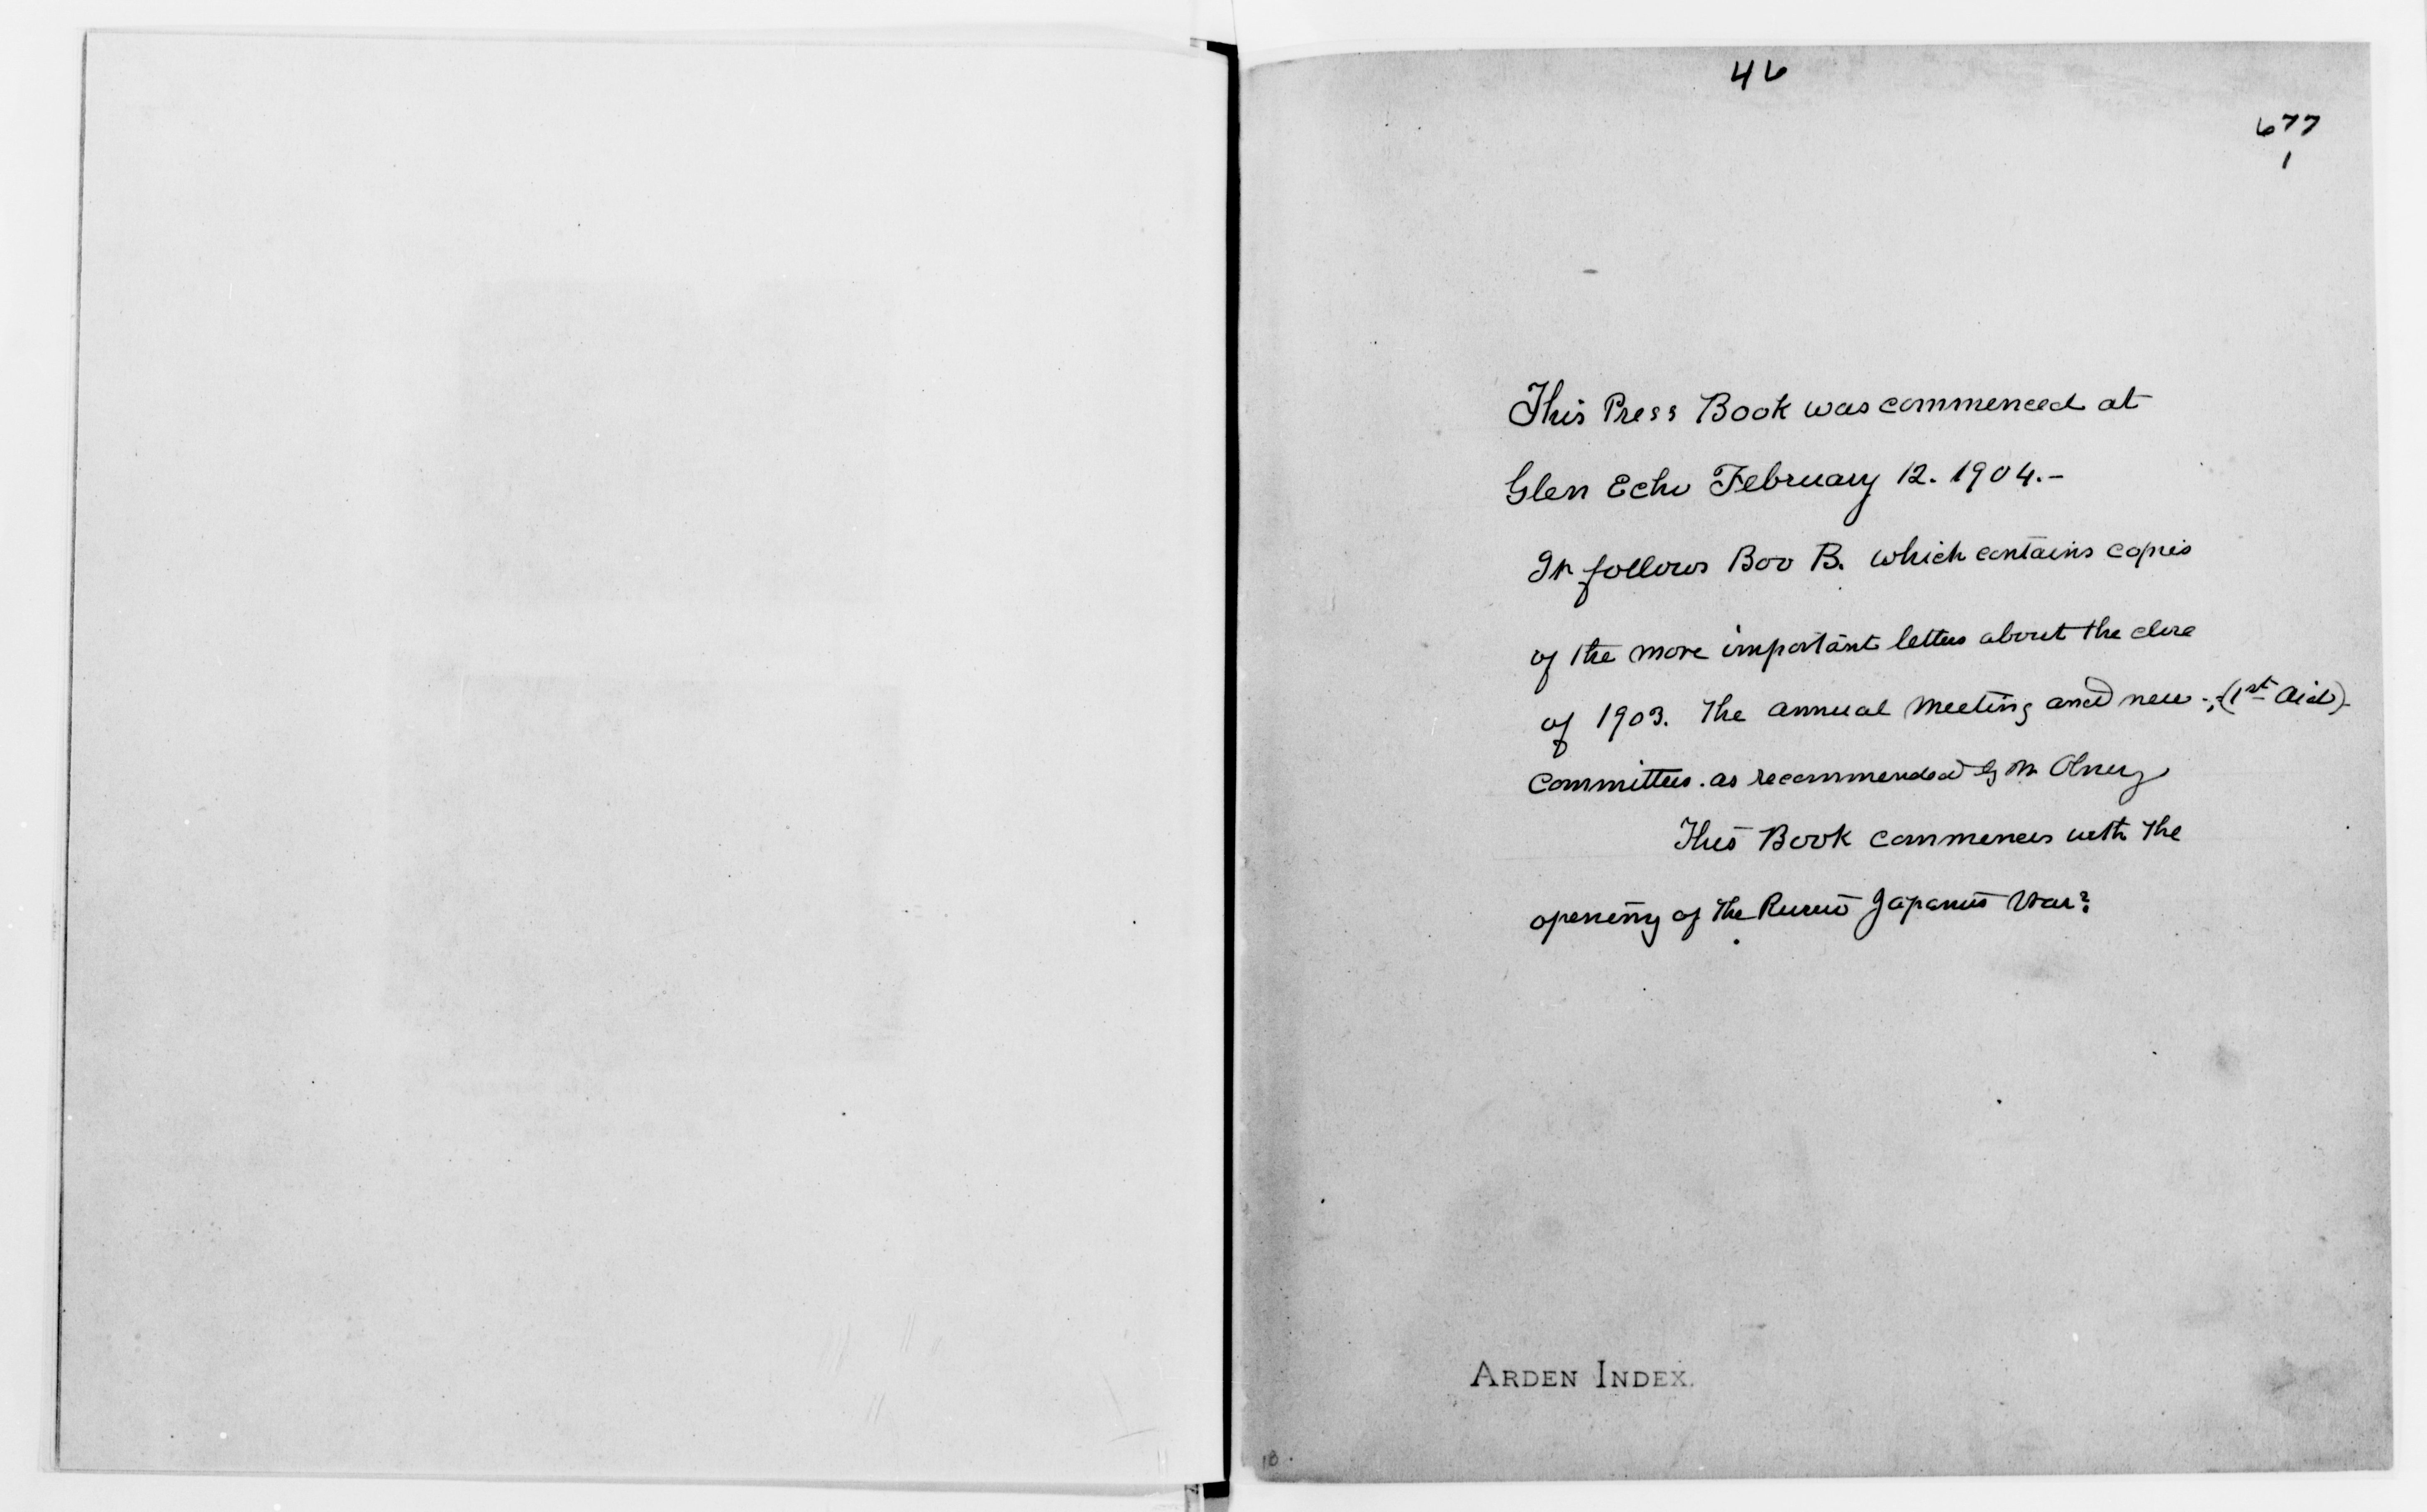 46
677
1
This Press Book was commenced at
Glen Echo February 12. 1904.-
It follows Boo B. which contains copies
of the more important letters about the close
of 1903. The annual meeting and new -;(1st Aid)-
Committees. as recommended by Mr Olney
This Book commences with the
opening of the Russio Japanes War?
ARDEN INDEX.
18.